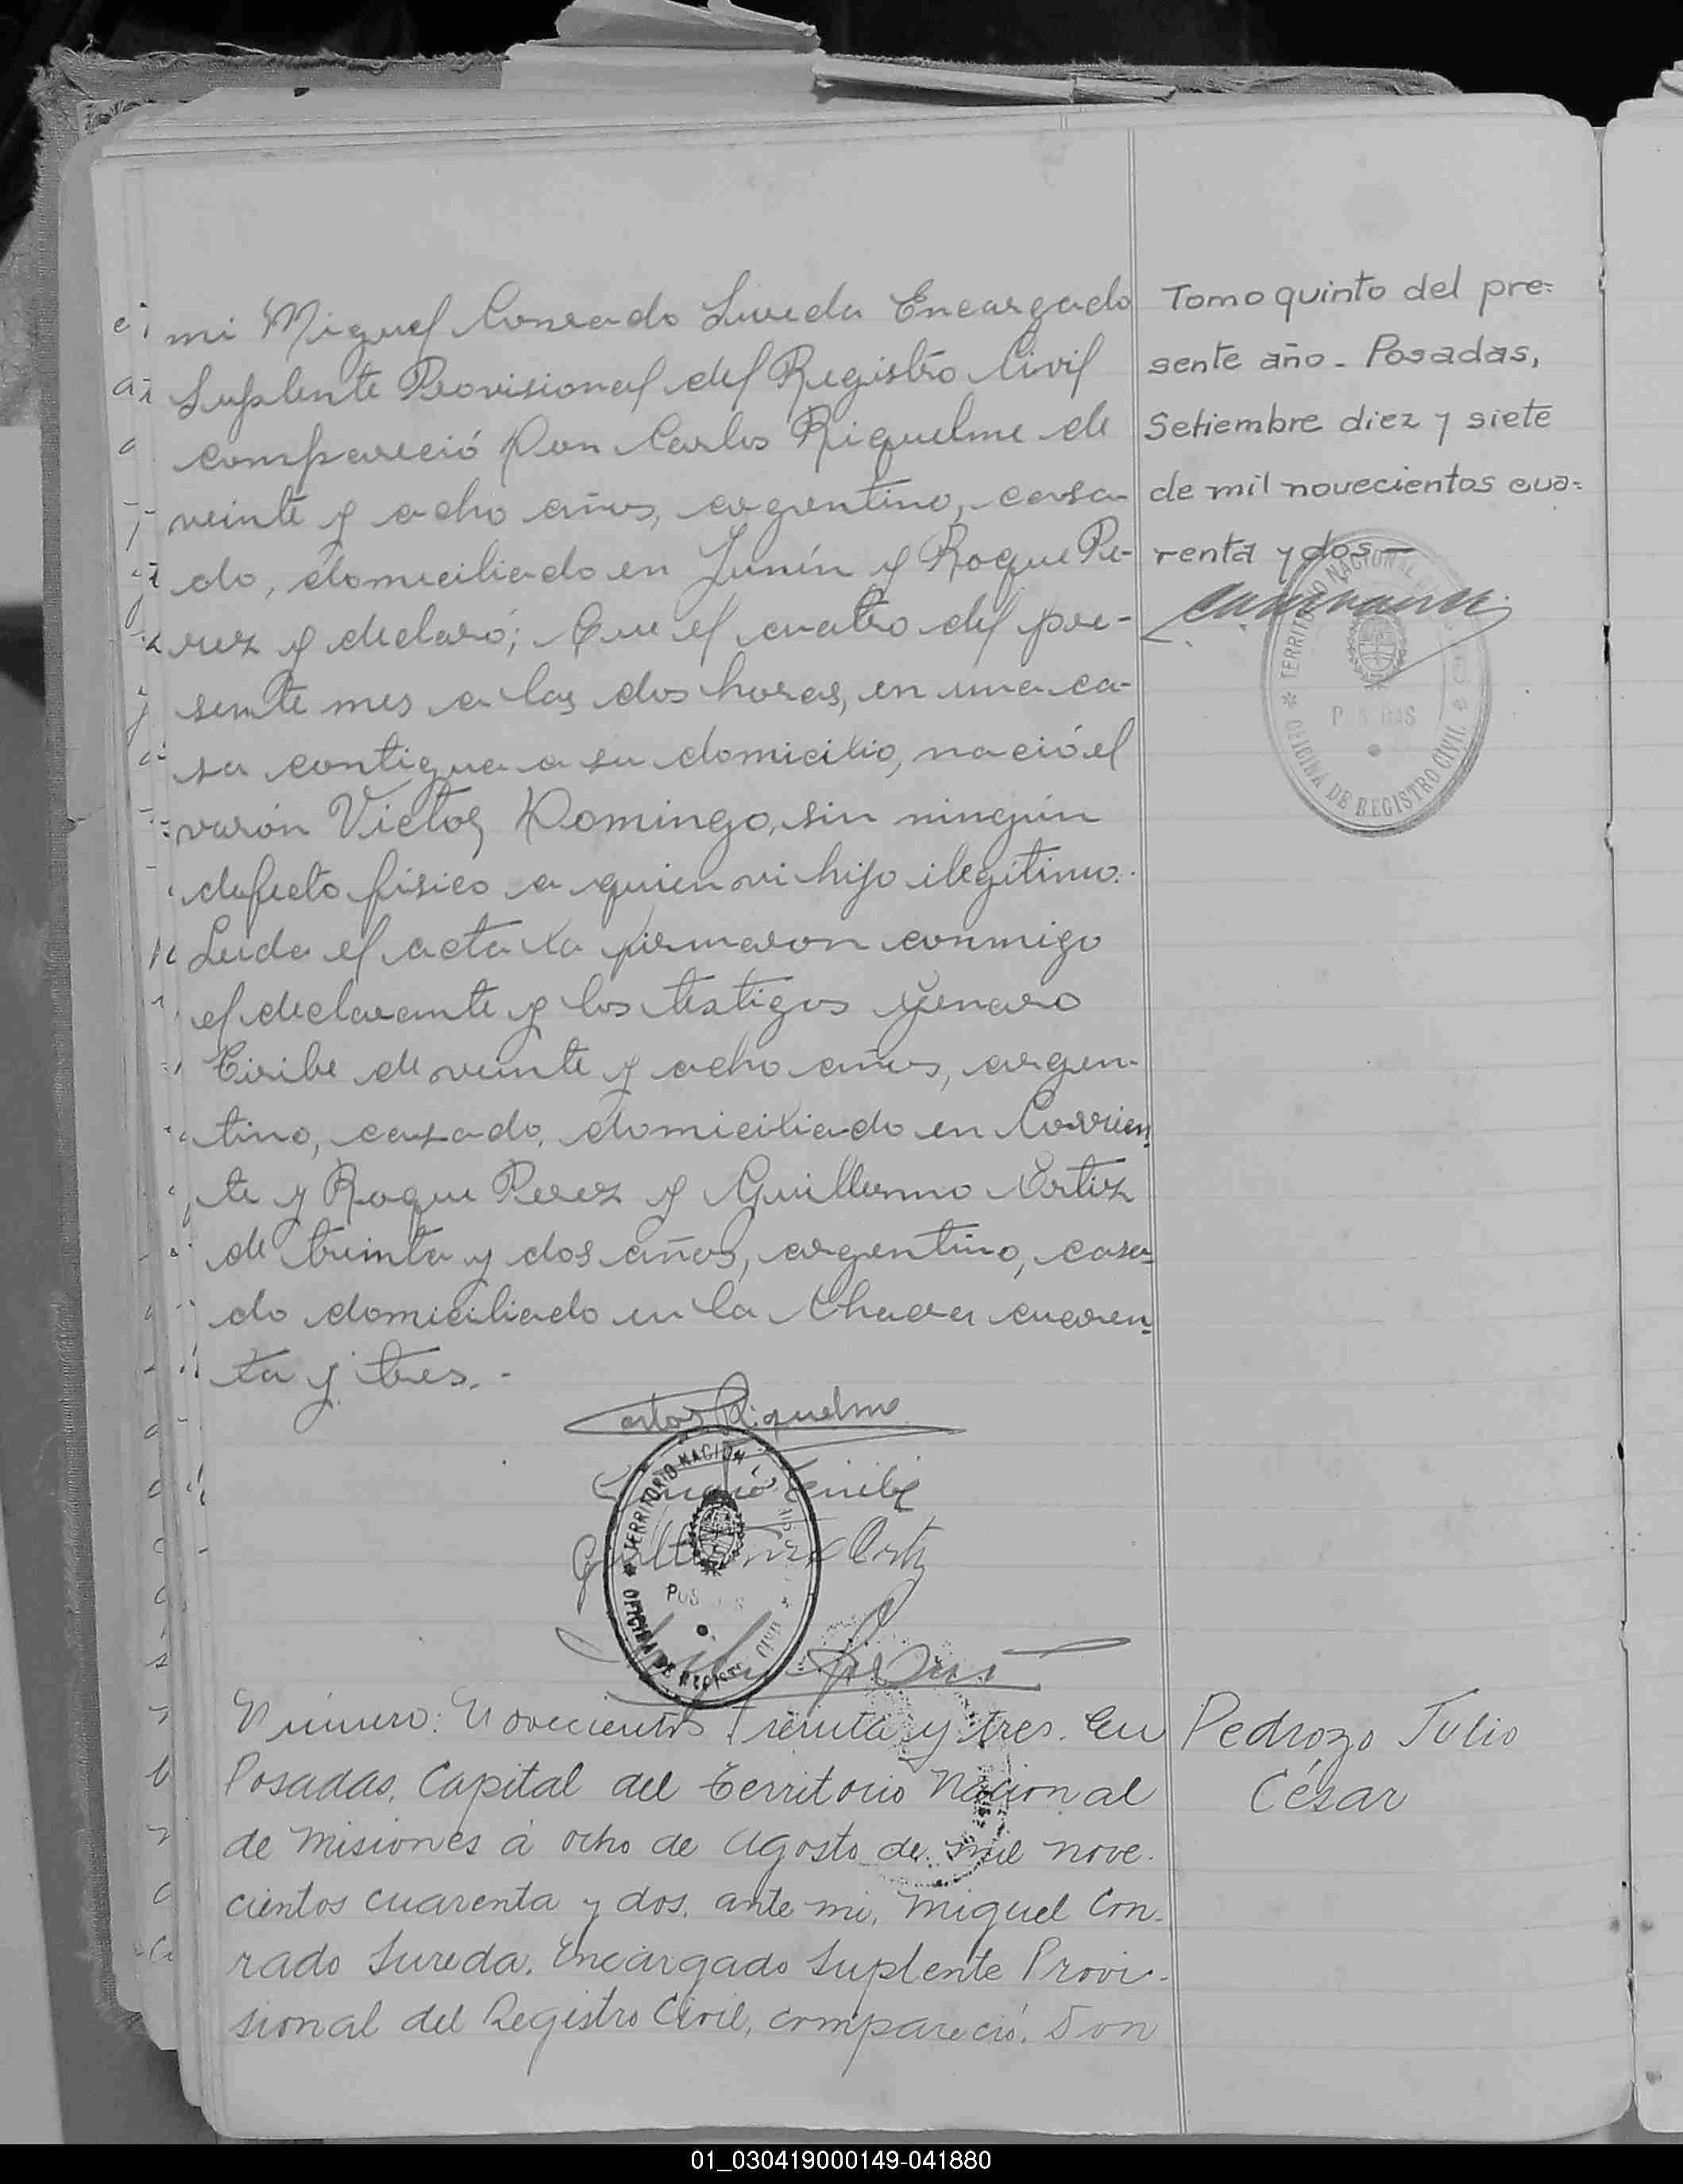 mi Miguel Conrado Sureda Encargado
Suplente Provisional del Registro Civil
compareció Don Carlos Riquelme de
veinte y ocho años, argentino, casa-
do, domiciliado en Junín y Roque Pe-
rez y declaró; Que el cuatro del pre-
sente mes a las dos horas, en una ca-
sa contigua a su domicilio, nació el
varón Victor Domingo, sin ningún
defecto físico a quien vi hijo ilegitimo.
Leida el acta la firmaron conmigo
el declarante y los testigos Genaro
Ciribe de veinte y ocho años, argen-
tino, casado, domiciliado en Corrien-
te y Roque Perez y Guillermo Ortiz
de treinta y dos años, argentino, casa-
do domiciliado en la Chacra cuaren-
ta y tres.-
Carlos Riquelme
Guillermo Ortiz
TERRITORIO NACION
OFICINA DE REGISTRO CIVIL
Número: Novecientos treinta y tres. En
Posadas, Capital del Territorio Nacional
de Misiones á ocho de Agosto de mil nove-
cientos cuarenta y dos, ante mi, Miguel Con-
rado Sureda, Encargado Suplente Provi-
sional del Registro Civil, compareció, Don
Tomo quinto del pre-
sente año - Posadas,
Setiembre diez y siete
de mil novecientos cua-
renta y dos -
TERRITORIO NACIONAL
POSADAS
OFICINA DE REGISTRO CIVIL
Pedrozo Julio
César
01_030419000149-041880